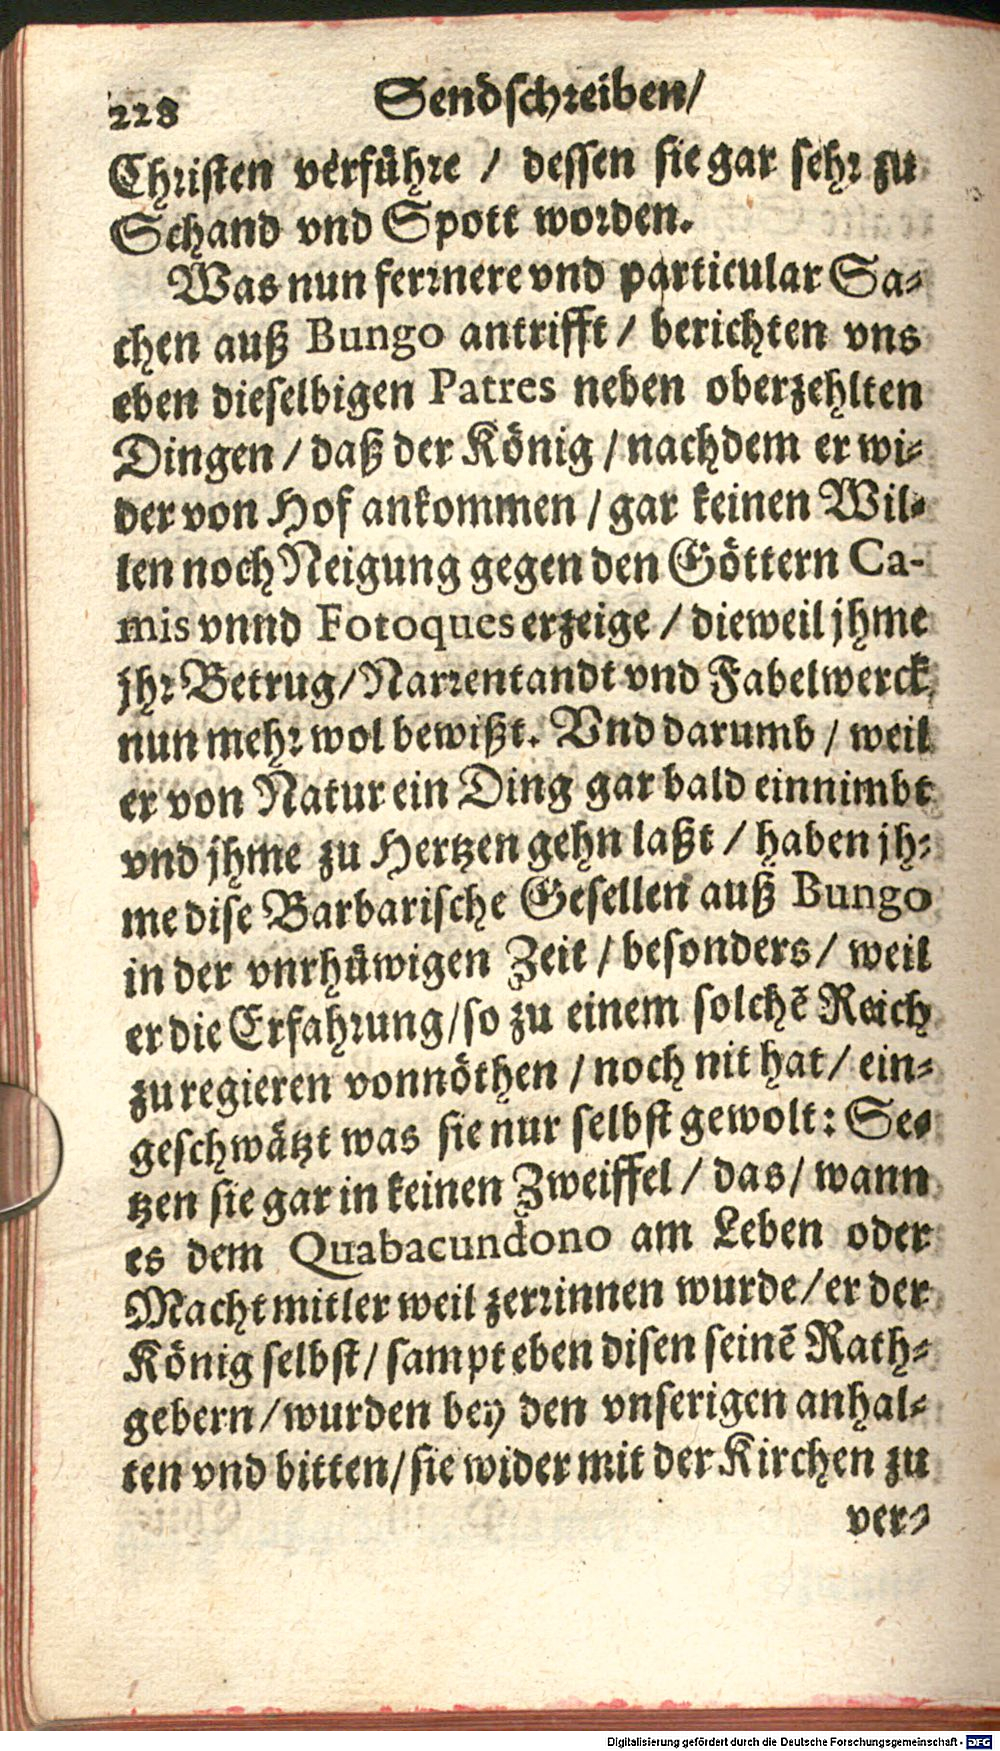 228 Sendschreiben/
Christen verführe / dessen sie gar sehr zu
Schand vnd Spott worden.
Was nun fermere vnd particular Sa-
chen auß Bungo antrifft / berichten vns
eben dieselbigen Patres neben oberzehlten
Dingen / daß der König / nachdem er wi-
der von Hof ankommen / gar keinen Wil-
len noch Neigung gegen den Göttern Ca-
mis vnnd Fotoques erzeige / dieweil jhme
jhr Betrug/Narrentandt vnd Fabelwerck
nun mehr wol bewißt. Vnd darumb / weil
er von Natur ein Ding gar bald einnimbt
vnd jhme zu Hertzen gehn laßt / haben jh-
me dise Barbarische Gesellen auß Bungo
in der vnrhüwigen Zeit / besonders / weil
er die Erfahrung/so zu einem solchẽ Reich
zu regieren vonnöthen / noch nit hat / ein-
geschwätzt was sie nur selbst gewolt: Se-
tzen sie gar in keinen Zweiffel / das/ wann
es dem Quabacundono am Leben oder
Macht mitler weil zerrinnen wurde/er der
König selbst/ sampt eben disen seinẽ Rath-
gebern/wurden bey den vnserigen anhal-
ten vnd bitten/sie wider mit der Kirchen zu
ver-
Digitalisierung gefördert durch die Deutsche Forschungsgemeinschaft - DFG